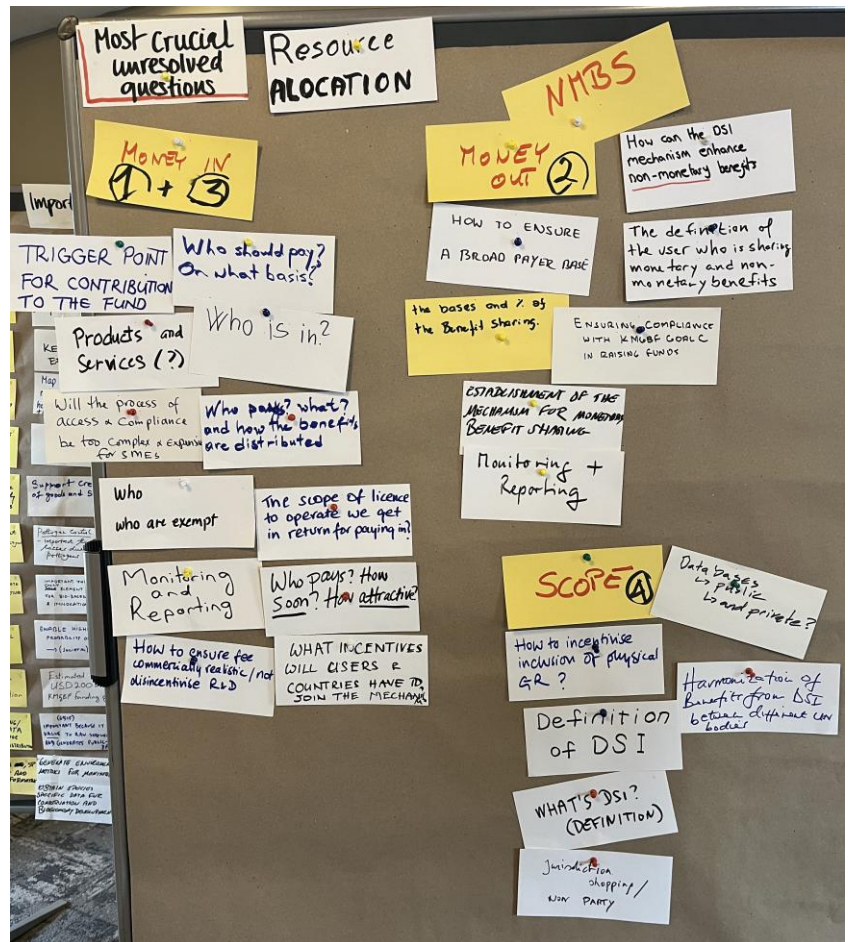 Most Crucial
unresolved
questions
Resource
ALOCATION
NMBS
MONEY IN
1 + 3
MONEY
OUT 2
How can the DSI
mechanism enhance
non-monetary benefits
Import
TRIGGER POINT
FOR CONTRIBUTION
TO THE FUND
Who should pay?
On what basis?
HOW TO ENSURE
A BROAD PAYER BASE
The definition of
the user who is sharing
monetary and non-
monetary benefits
Products and
Services (?)
Who is in?
the bases and % of
the Benefit sharing.
ENSURING COMPLIANCE
WITH KMGBF GOAL C
IN RAISING FUNDS
Will the process of
access & Compliance
be too Complex & Expensive
for SMEs
Who pays? what?
and how the benefits
are distributed
ESTABLISHMENT OF THE
MECHANISM FOR MONETARY
BENEFIT SHARING
Monitoring +
Reporting
Who
who are exempt
The scope of licence
to operate we get
in return for paying in?
Monitoring
and
Reporting
Who pays? How
Soon? How attractive?
How to ensure fee
commercially realistic/not
disincentivise R&D
WHAT INCENTIVES
WILL USERS &
COUNTRIES HAVE TO
JOIN THE MECHANISM
SCOPE 4
Data bases
↳ public
↳ and private?
How to incentivise
inclusion of physical
GR?
Harmonization of
Benefits from DSI
between different UN
bodies
Definition
of DSI
WHAT'S DSI?
(DEFINITION)
Jurisdiction
shopping/
NON PARTY
Map
Support
of goods and
IMPORTANT
ELEMENT
ENABLE
PROBABILITY
Estimated
IMPORTANT BECAUSE IT
GENERATE
METRICS FOR
SPECIFIC DATA FOR
CONSERVATION AND